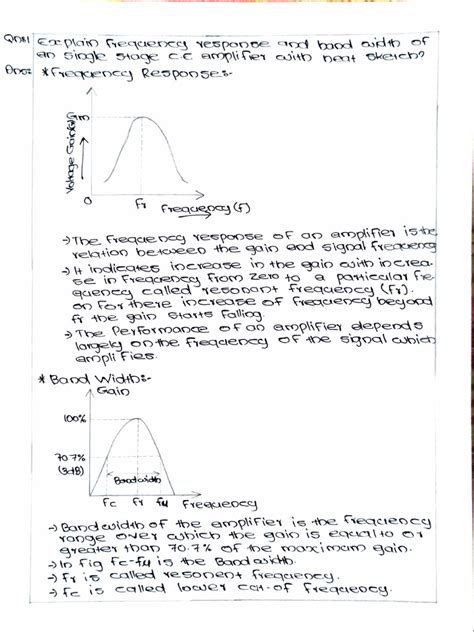 Qns:1 Explain frequency response and band width of
an single stage C.E amplifier with neat sketch?
Ans:- *Frequency Response:-
Gm
Voltage Gain(G)
0
fr
Frequency(f)
→The frequency response of an amplifier is the
relation between the gain and signal frequency
→It indicates increase in the gain with increa-
se in frequency from zero to a particular fre
quency called resonant frequency (fr).
on for there increase of frequency beyond
fr the gain starts falling.
→The Performance of an amplifier depends
largely on the frequency of the signal which
amplifies.
* Band Width:-
Gain
100%
70.7%
(3dB)
Bandwidth
fc fr fu Frequency
→Bandwidth of the amplifier is the frequency
range over which the gain is equal to or
greater than 70.7% of the maximum gain.
→In fig fc-fu is the Bandwidth.
→fr is called resonent frequency.
→fc is called lower cut-of frequency.